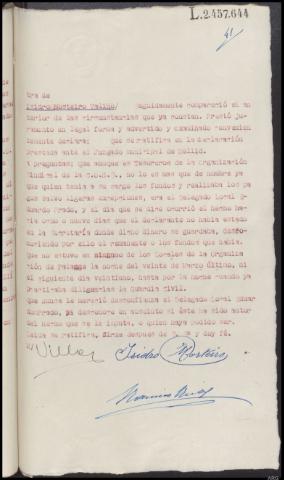 L.2.457.644
41
tra de
Isidro Monteiro Valiño/ Seguidamente compareció el an
terior de las circunstancias que ya constan. Prestó ju-
ramento en legal forma y advertido y examinado convenien
temente declara: Que se ratifica en la declaración
prestada ante el Juzgado Municipal de Mellid.
A preguntas; que aunque es Tesorero de la Organización
Sindical de la C.O.N.S., no lo es mas que de nombre ya
que quien tenia a su cargo los fondos y realizaba los pa
gos salvo algunas excepciones, era el Delegado Local
Prado, y el dia que se dice ocurrió el hecho hace
ocho o nueve dias que el declarante no habia estado
en la Secretaría donde dicho dinero se guardaba, desco-
nociendo por ello el remanente o los fondos que habia.
Que no estuvo en ninguno de los Locales de la Organiza
ción de Falange la noche del veinte de Marzo último, ni
el siguiente dia veintiuno, hasta por la noche cuando ya
practicaba diligencias la Guardia Civil.
Que nunca le mereció desconfianza el Delegado Local
Prado, y desconoce en absoluto si éste ha sido autor
del hecho que se le imputa, o quien haya podido ser.
Leida se ratifica, firma despues de S. Sª y doy fé.
Villar
Isidro Monteiro